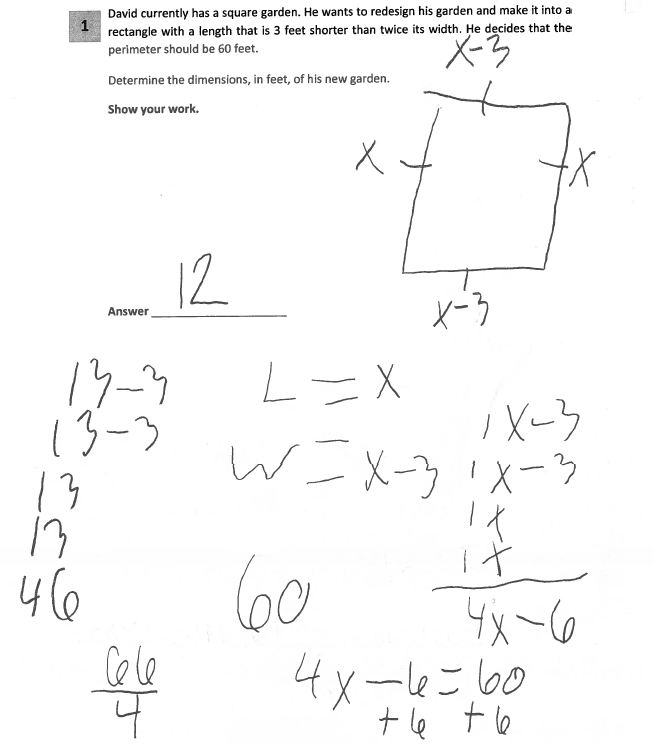 1
David currently has a square garden. He wants to redesign his garden and make it into a
rectangle with a length that is 3 feet shorter than twice its width. He decides that the
perimeter should be 60 feet.
Determine the dimensions, in feet, of his new garden.
Show your work.
x-3
x
x
x-3
Answer 12
13-3
13-3
13
13
46
66
4
L = x
W = x-3
60
1x-3
1x-3
1x
1x
4x-6
4x-6=60
+6 +6